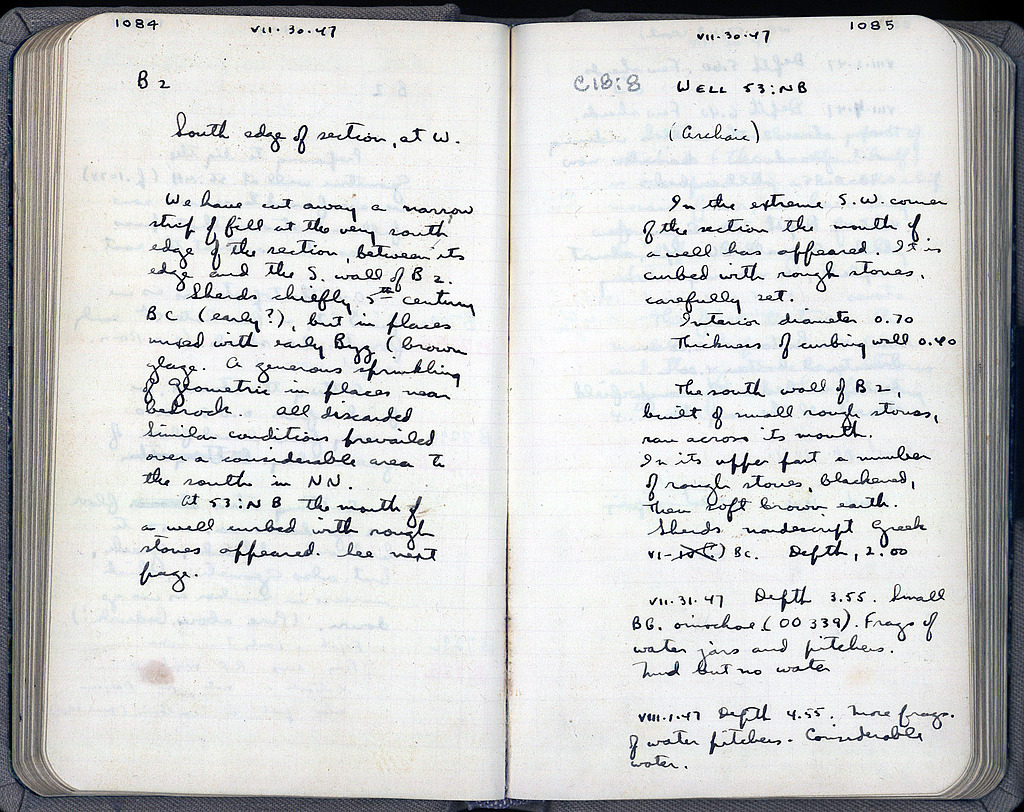 1084
VII·30·47
B 2
South edge of section, at W.
We have cut away a narrow
strip of fill at the very south
edge of the section, between its
edge and the S. wall of B 2.
Sherds chiefly 5th century
BC (early?), but in places
mixed with early Byz (brown
glaze. A generous sprinkling
of Geometric in places near
bedrock. All discarded
Similar conditions prevailed
over a considerable area to
the south in NN.
At 53:NB the mouth of
a well curbed with rough
stones appeared. See next
page.
1085
VII·30·47
C18:8 WELL 53:NB
(Archaic)
In the extreme S.W. corner
of the section the mouth of
a well has appeared. It is
curbed with rough stones,
carefully set.
Interior diameter 0.70
Thickness of curbing wall 0.40
The south wall of B 2,
built of small rough stones,
ran across its mouth.
In its upper part a number
of rough stones, blackened,
then soft brown earth.
Sherds nondescript Greek
VI- BC. Depth, 2.00
VII·31·47 Depth 3.55. Small
BG. oinochoe (OO 339). Frags of
water jars and pitchers.
Mud but no water
VIII·1·47 Depth 4.55. More frags.
of water pitchers. Considerable
water.